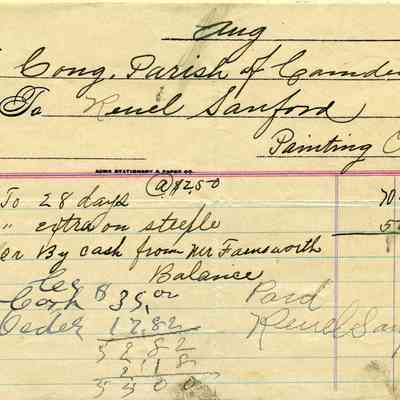 Aug
Cong. Parish of Camde
To Reuel Sanford
Painting C
ACME STATIONERY & PAPER CO.
To 28 days @ $2.50 70
" extra on steeple 5
er By cash from Mr Farnsworth
Balance
Cash $35.00 Paid
Order 17.82 Reuel San
52 82
2 18
55 00